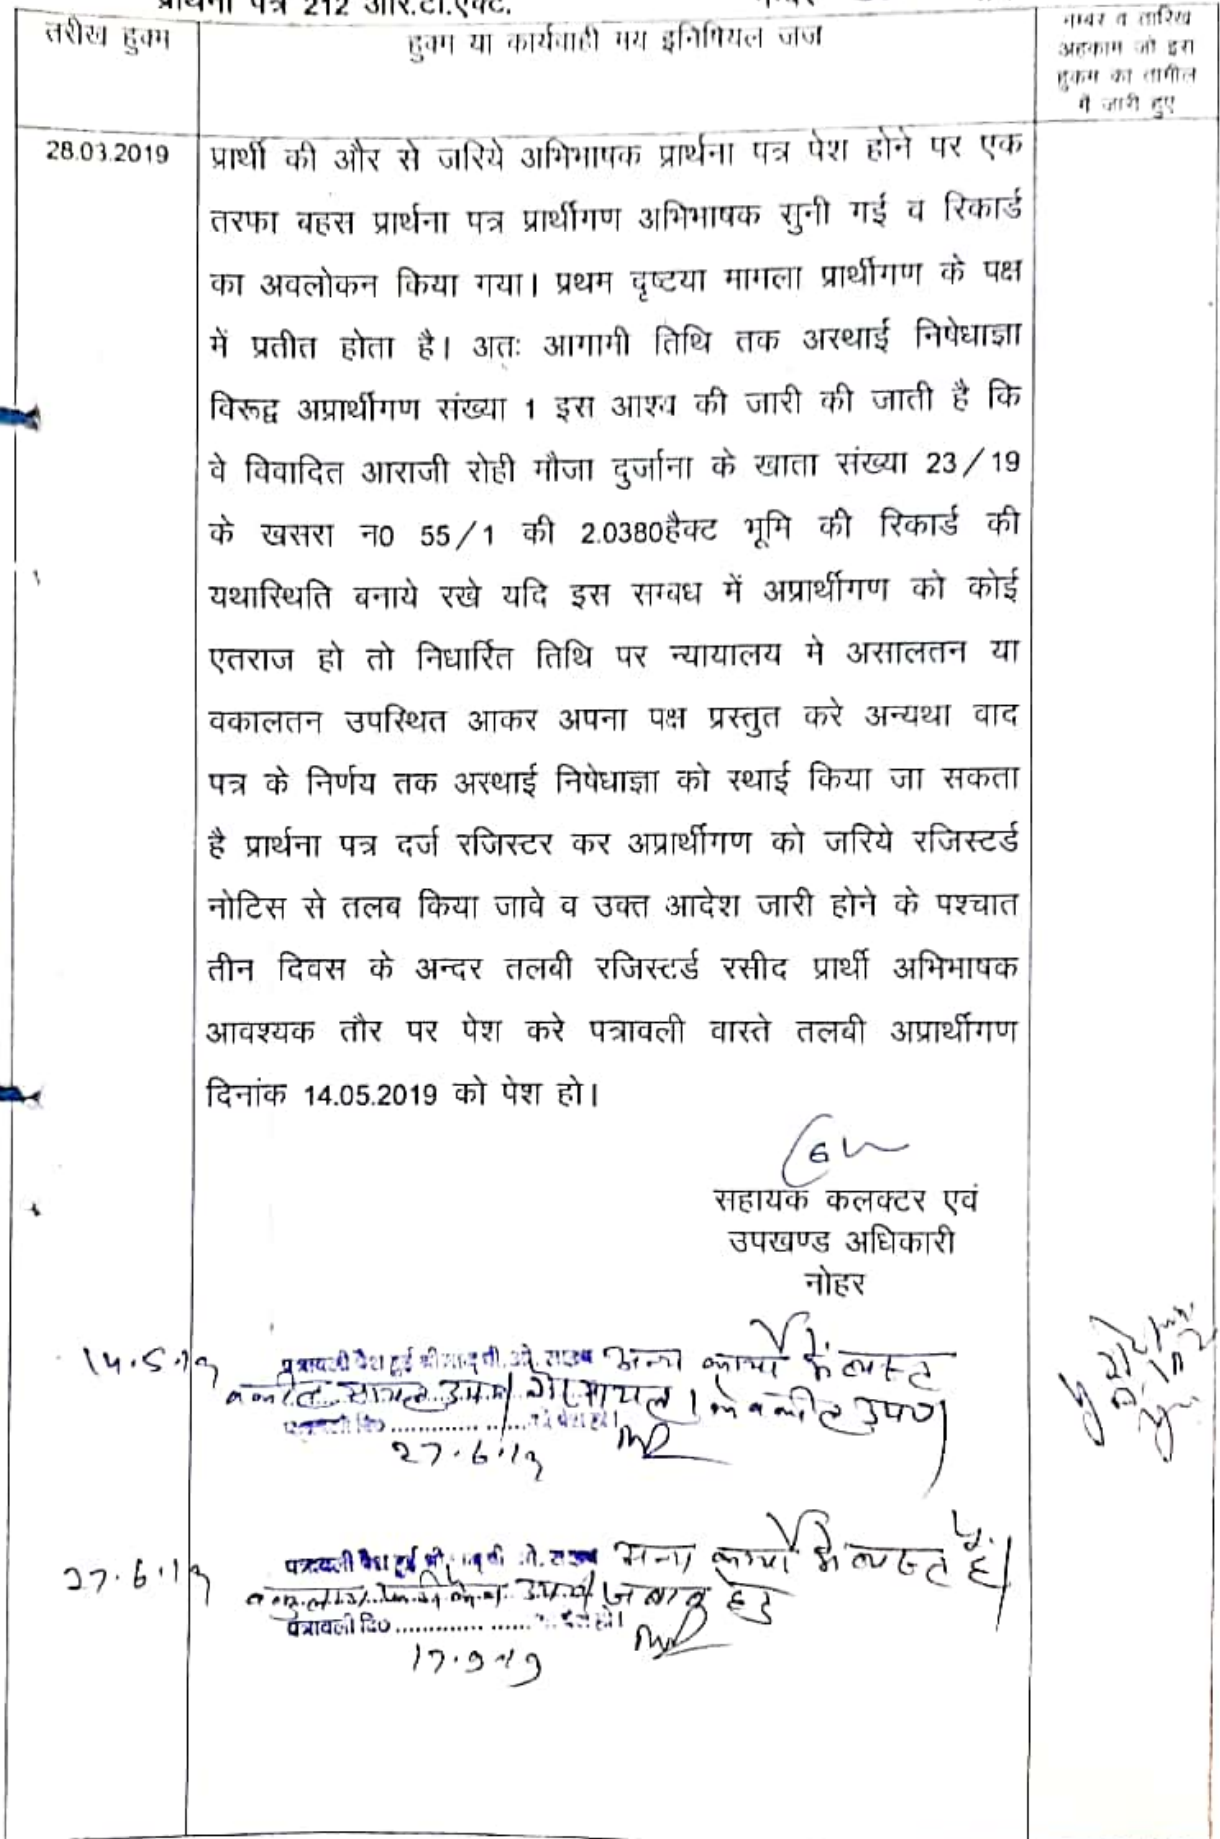 प्रार्थना पत्र 212 आर.टी.एक्ट.
तरीख हुक्म
हुक्म या कार्यवाही मय इनिषियल जज
नम्बर व तारिख
अहकाम जो इस
हुकम का तामील
में जारी हुए
28.03.2019
प्रार्थी की और से जरिये अभिभाषक प्रार्थना पत्र पेश होने पर एक
तरफा बहस प्रार्थना पत्र प्रार्थीगण अभिभाषक सुनी गई व रिकार्ड
का अवलोकन किया गया। प्रथम दृष्टया मामला प्रार्थीगण के पक्ष
में प्रतीत होता है। अतः आगामी तिथि तक अस्थाई निषेधाज्ञा
विरूद्व अप्रार्थीगण संख्या 1 इस आश्य की जारी की जाती है कि
वे विवादित आराजी रोही मौजा दुर्जाना के खाता संख्या 23/19
के खसरा न0 55/1 की 2.0380हैक्ट भूमि की रिकार्ड की
यथास्थिति बनाये रखे यदि इस सम्बध में अप्रार्थीगण को कोई
एतराज हो तो निधार्रित तिथि पर न्यायालय मे असालतन या
वकालतन उपस्थित आकर अपना पक्ष प्रस्तुत करे अन्यथा वाद
पत्र के निर्णय तक अस्थाई निषेधाज्ञा को स्थाई किया जा सकता
है प्रार्थना पत्र दर्ज रजिस्टर कर अप्रार्थीगण को जरिये रजिस्टर्ड
नोटिस से तलब किया जावे व उक्त आदेश जारी होने के पश्चात
तीन दिवस के अन्दर तलबी रजिस्टर्ड रसीद प्रार्थी अभिभाषक
आवश्यक तौर पर पेश करे पत्रावली वास्ते तलबी अप्रार्थीगण
दिनांक 14.05.2019 को पेश हो।
सहायक कलक्टर एवं
उपखण्ड अधिकारी
नोहर
14.5.19
पत्रावली पेश हुई श्रीमान् पी. ओ. साहब अन्य कार्यो में व्यस्त
वकील सायल उप0/ गैरसायल 1 के वकील उप0
पत्रावली दि0 ........ को पेश हो।
27.6.19
27.6.19
पत्रावली पेश हुई श्रीमान् पी. ओ. साहब अन्य कार्यो में व्यस्त है।
उप0/ जवाब हेतु
पत्रावली दि0 ........ को पेश हो।
17.9.19